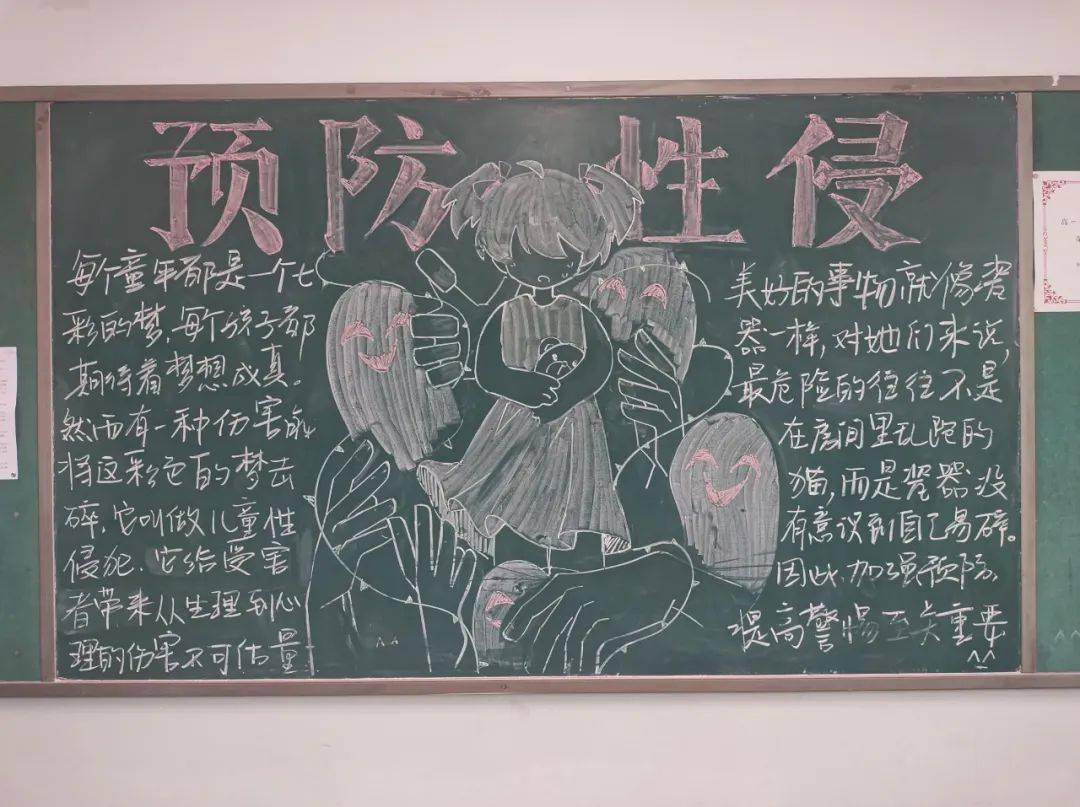 预防性侵
每个童年都是一个七
彩的梦,每个孩子都
期待着梦想成真。
然而有一种伤害会
将这彩色的梦击
碎,它叫做儿童性
侵犯,它给受害
者带来从生理到心
理的伤害不可估量
美好的事物就像瓷
器一样,对她们来说,
最危险的往往不是
在房间里乱跑的
猫,而是瓷器没
有意识到自己易碎。
因此,加强预防,
提高警惕至关重要